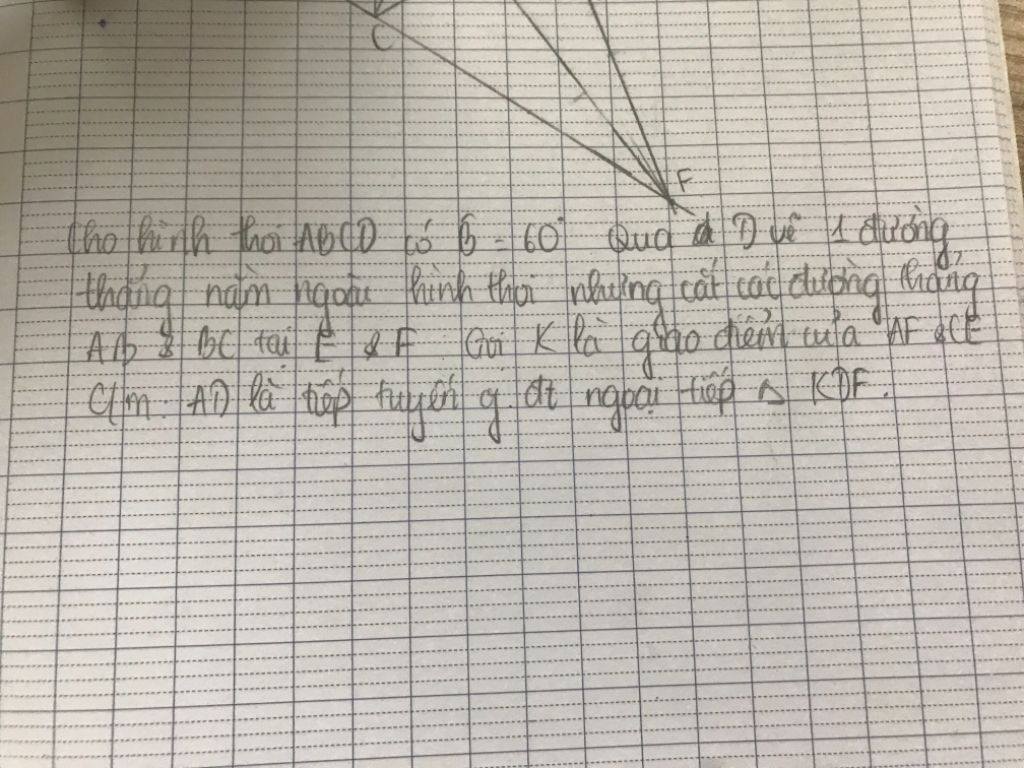 C
F
Cho hình thoi ABCD có B̂ = 60° Qua D vẽ 1 đường
thẳng nằm ngoài hình thoi nhưng cắt các đường thẳng
AB & BC tại E & F Gọi K là giao điểm của AF & CE
C/m: AD là tiếp tuyến g đt ngoại tiếp △ KDF.